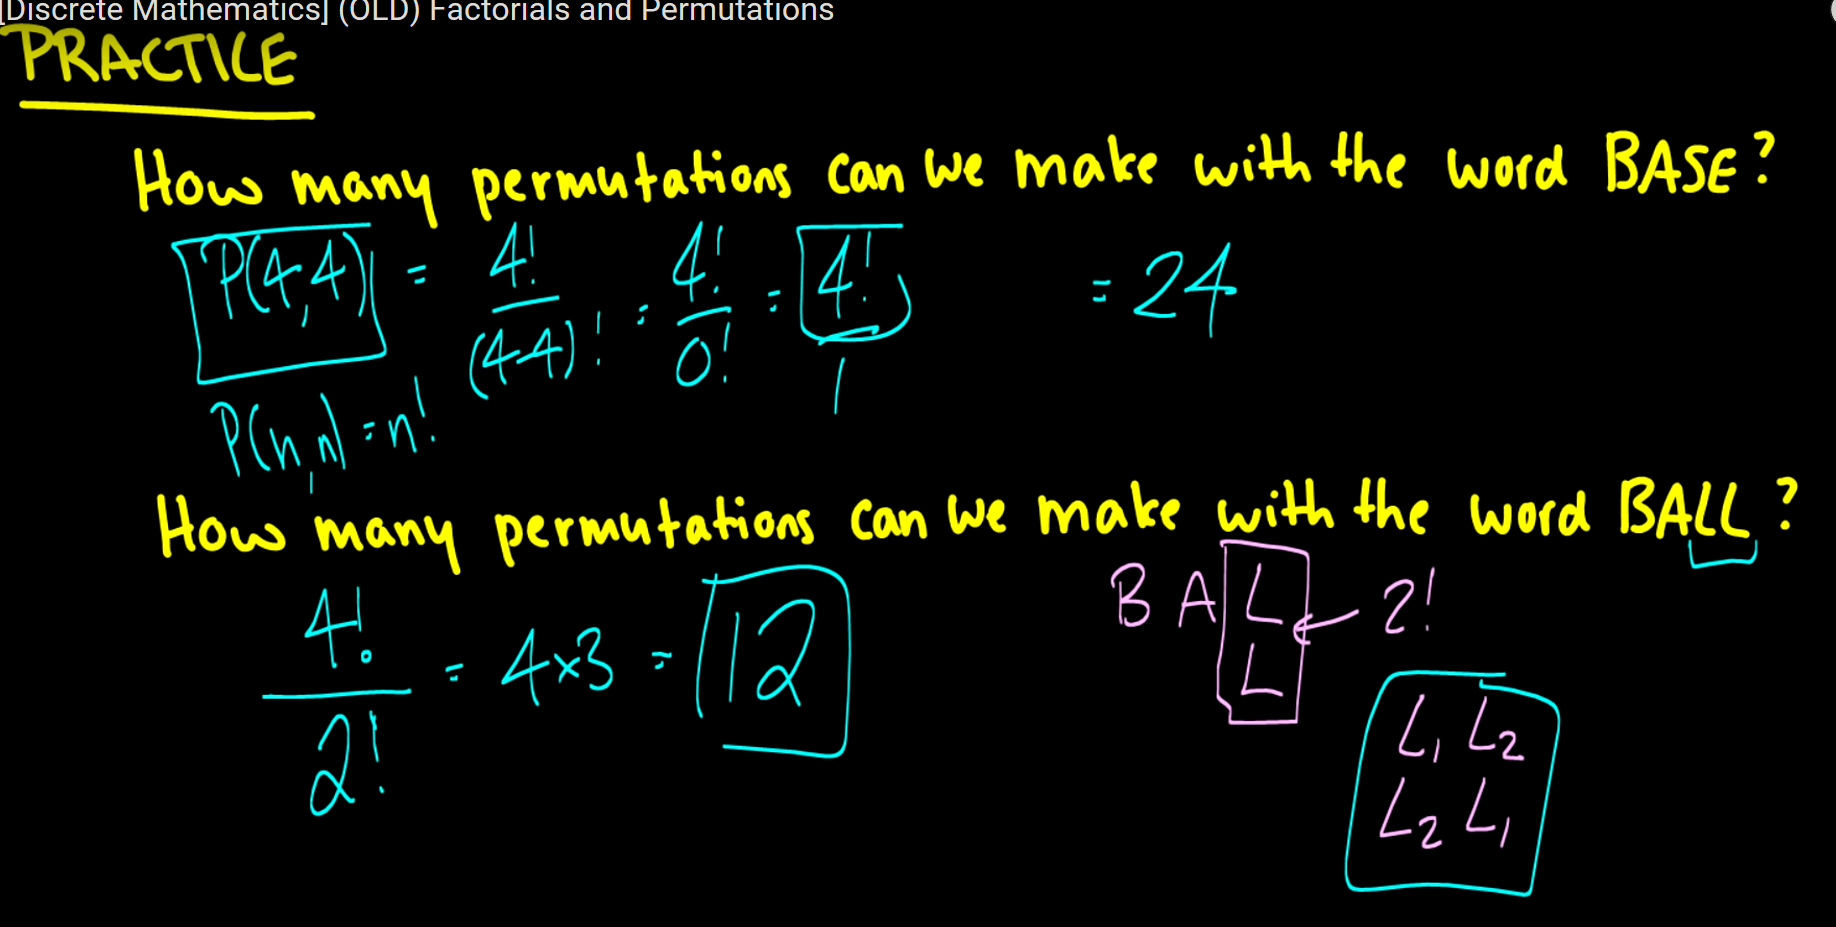 [Discrete Mathematics] (OLD) Factorials and Permutations
PRACTICE
How many permutations can we make with the word BASE?
P(4,4) = 4!/(4-4)! = 4!/0! = 4!/1 = 24
P(n,n) = n!
How many permutations can we make with the word BALL?
4!/2! = 4x3 = 12
B A L 2!
L
L1 L2
L2 L1